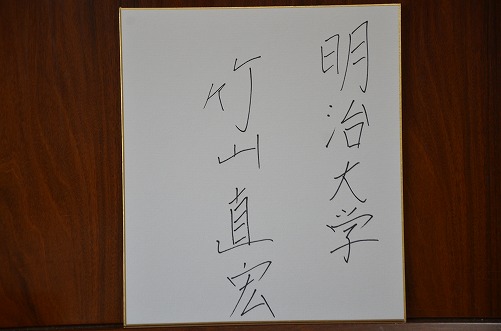 明治大学
竹山直宏